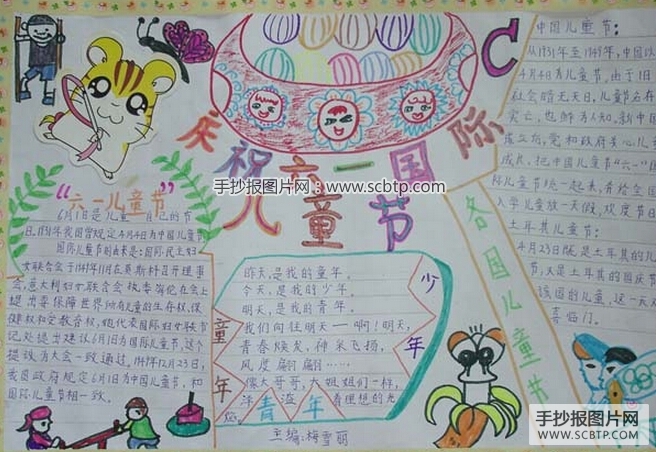 庆祝六一国际
儿童节
手抄报图片网：www.scbtp.com
“六一儿童节”
6月1是儿童自己的节
日,1931年我国曾规定4月4日为中国儿童节,
国际儿童节的由来是:国际民主妇
女联合会于1949年11月在莫斯科召开理事
会,意大利妇女联合会执委
提出要保障世界所有儿童的生存权,保
健权和受教育权,她代表国际妇女联节
记处提出建议6月1日为国际儿童节,这个
提议为大会一致通过。1949年12月23日,
我国政府规定6月1日为中国儿童节,和
国际儿童节相一致。
昨天,是我的童年。
今天,是我的少年。
明天,是我的青年。
我们向往明天——啊!明天,
青春焕发,神采飞扬,
风度翩翩……
像大哥哥,大姐姐们一样,
洋溢着理想的光
焰。
童年
少年
青年
主编:梅雪丽
C
各国儿童节
中国儿童节:
从1931年至1949年,中国以
4月4日为儿童节,由于旧
社会暗无天日,儿童节名存
实亡,也鲜为人知,新中国
成立后,党和政府关心儿
成长,把中国儿童节“六一”国
际儿童节统一起来,并给全国
入学儿童放一天假,欢度节日
土耳其儿童节:
4月23日既是土耳其的儿
节,又是土耳其的国庆节
该国的儿童,这一天双
喜临门。
手抄报图片网
WWW.SCBTP.COM